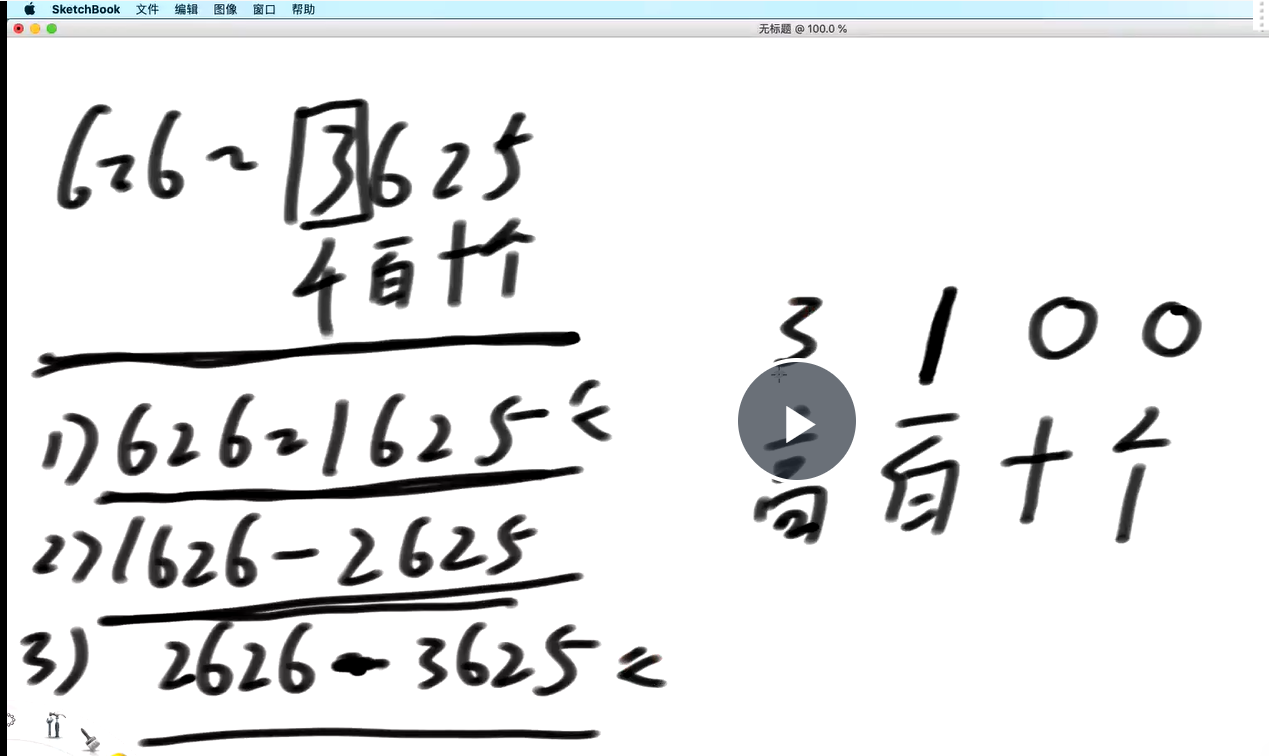 SketchBook 文件 编辑 图像 窗口 帮助
无标题 @ 100.0 %
626~3625
千百十个
1)626~1625
2)1626-2625
3) 2626-3625
3 1 0 0
百十个